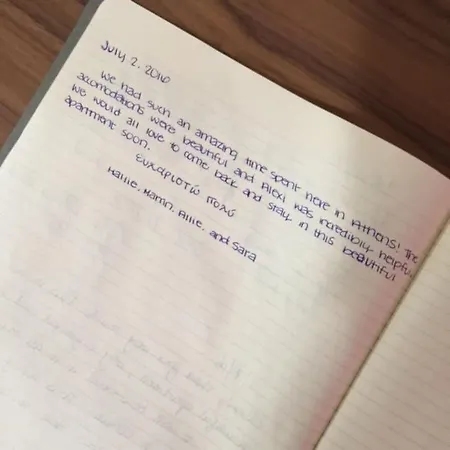 July 2, 2016
We had such an amazing time spent here in Athens! The
accomodations were beautiful and Alexi was incredibly helpful.
We would all love to come back and stay in this beautiful
apartment soon.
Ευχαριστώ πολύ
Hallie, Mamn, Allie, and Sara